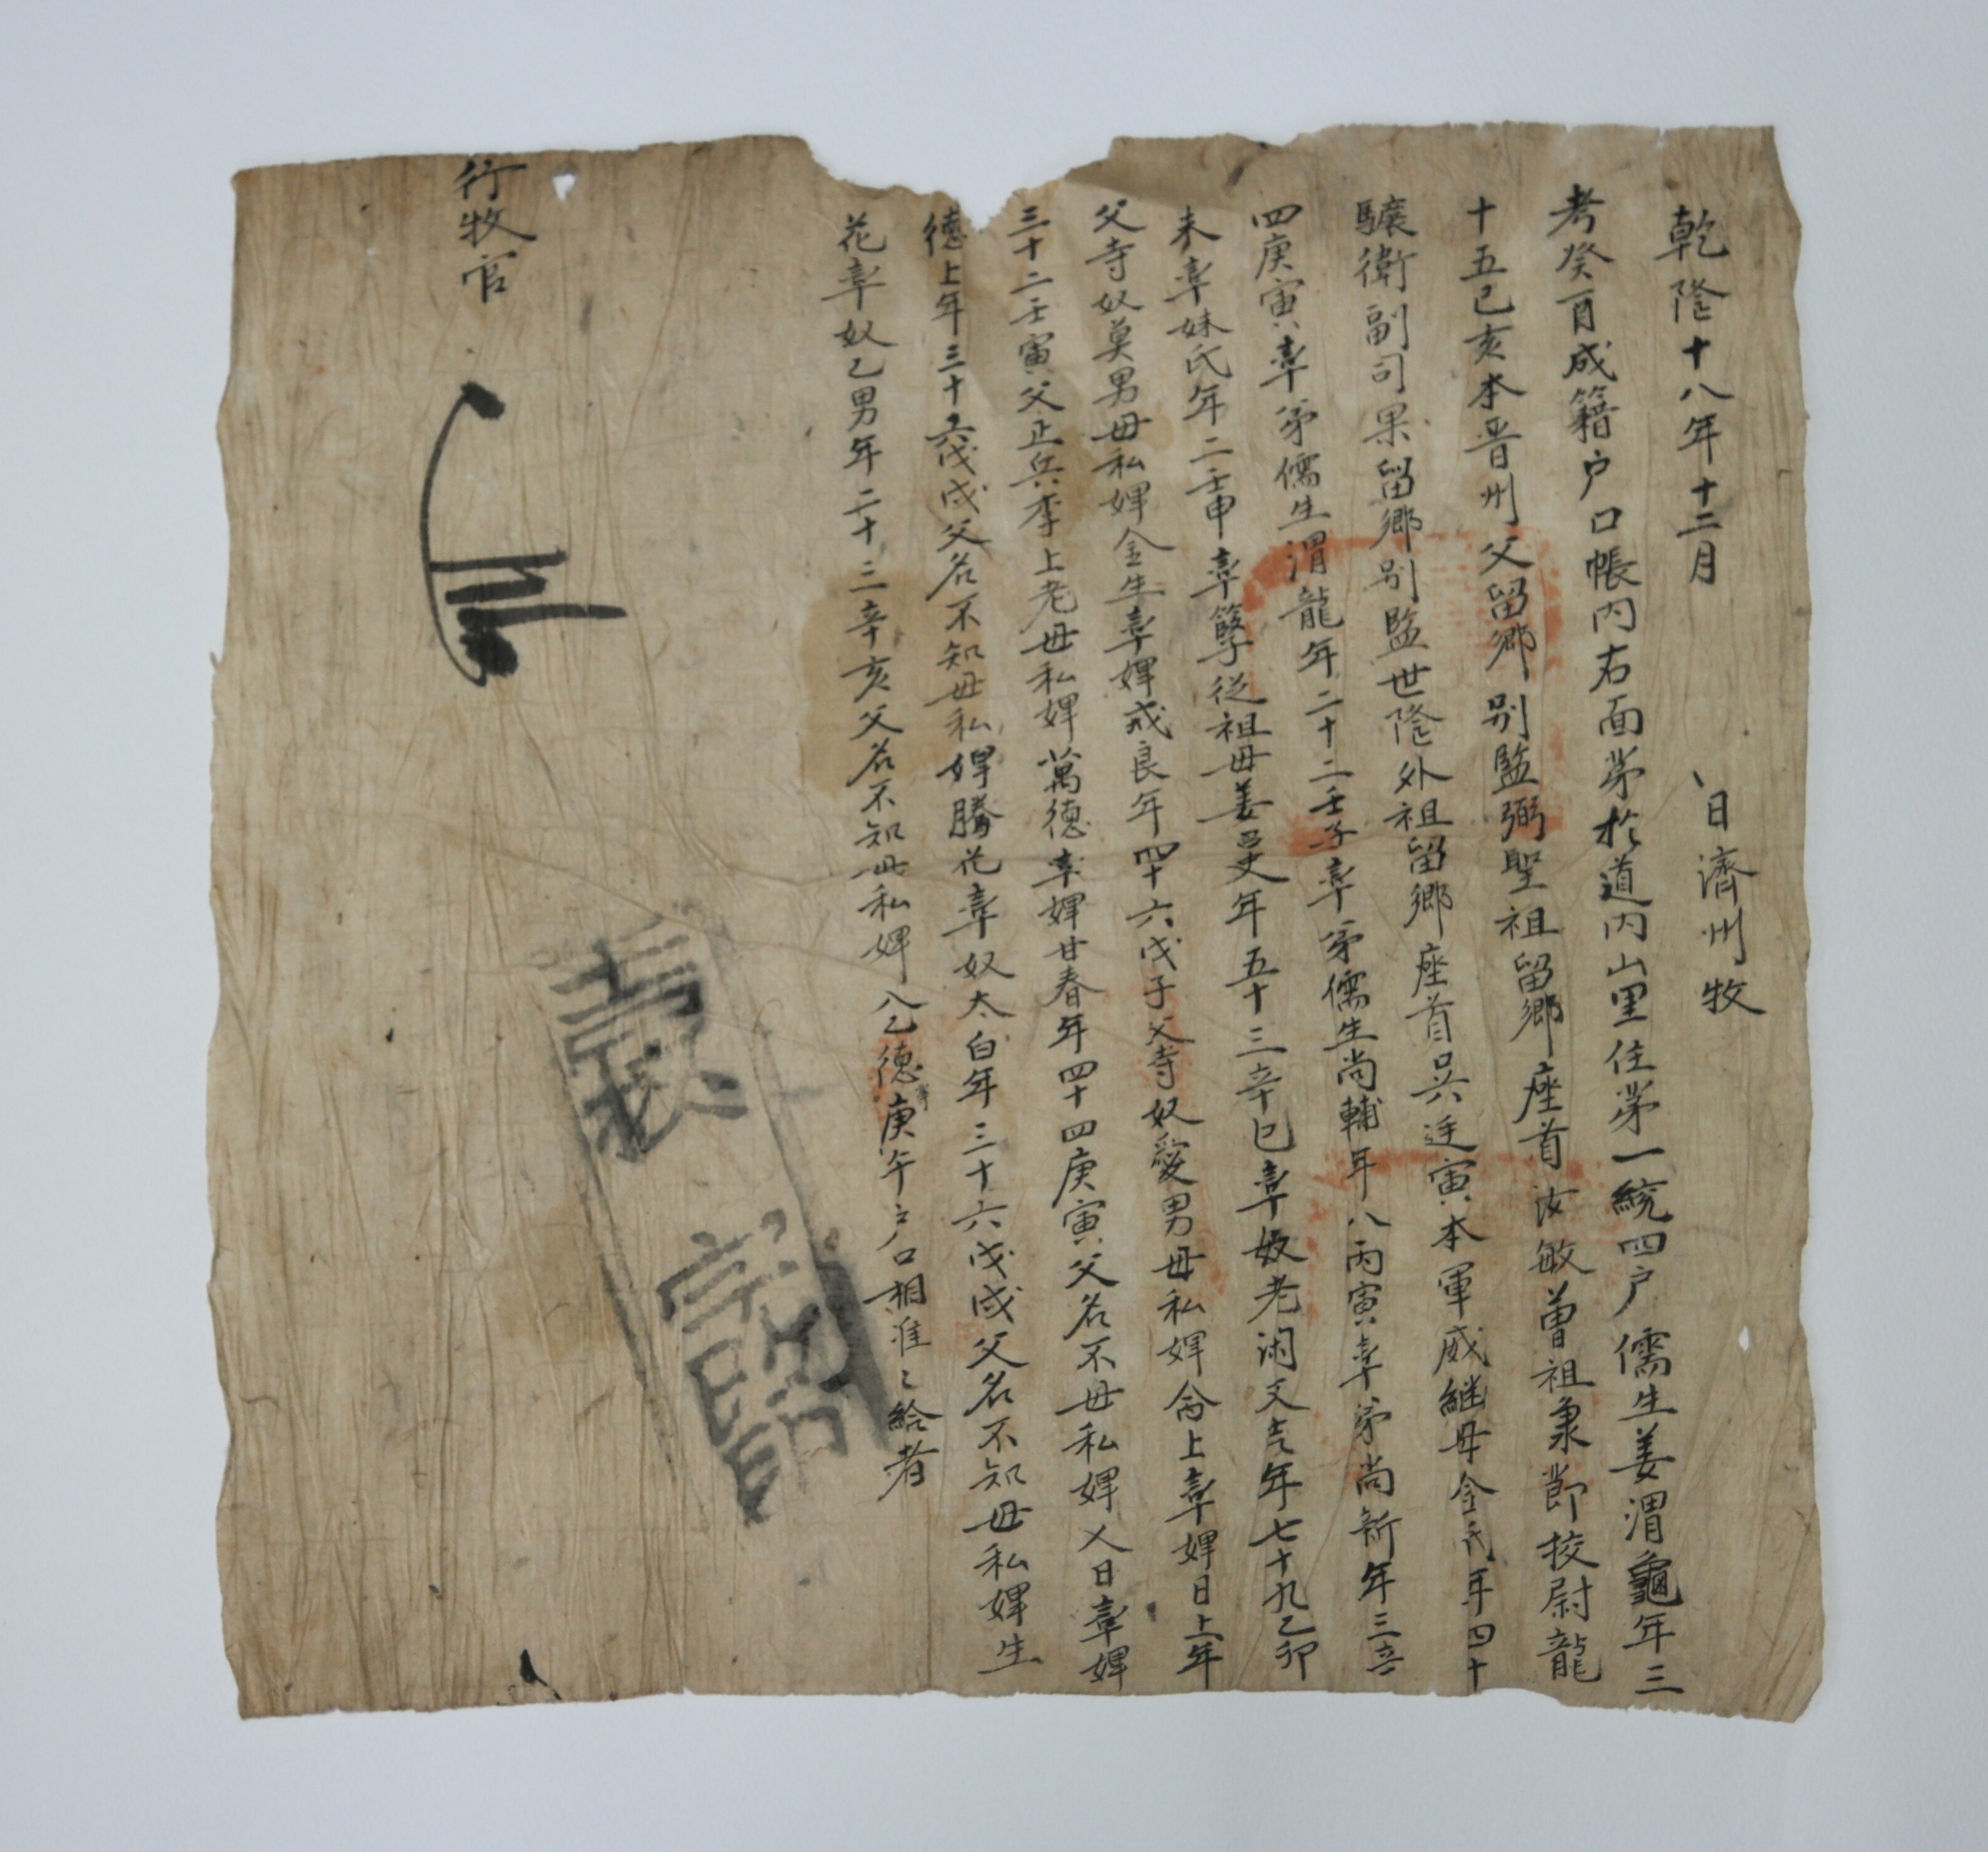 乾隆十八年十二月 日濟州牧
考癸酉成籍户口帳内右面苐於道内山里住苐一統四户儒生姜渭龜年三
十五己亥本晋州父留鄕別監弼聖祖留鄕座首汝敏曾祖秉節校尉龍
驤衛副司果留鄕別監世隆外祖留鄕座首吳廷寅本軍威継母金氏年四十
四庚寅率苐儒生渭龍年二十二壬子率苐儒生尚輔年八丙寅率苐尚新年三辛
未率妹氏年二壬申率孽從祖母姜召史年五十三辛巳率奴老閑文年七十九乙卯
父寺奴莫男母私婢金生率婢戒良年四十六戊子父寺奴愛男母私婢禽上率婢日上年
三十二壬寅父正兵李上老母私婢萬德率婢甘春年四十四庚寅父名不母私婢人日率婢
德上年三十六戊戌父名不知母私婢勝花率奴太白年三十六戊戌父名不知母私婢生
花率奴乙男年二十三辛亥父名不知母私婢八乙德庚午户口相准々給者
行牧官